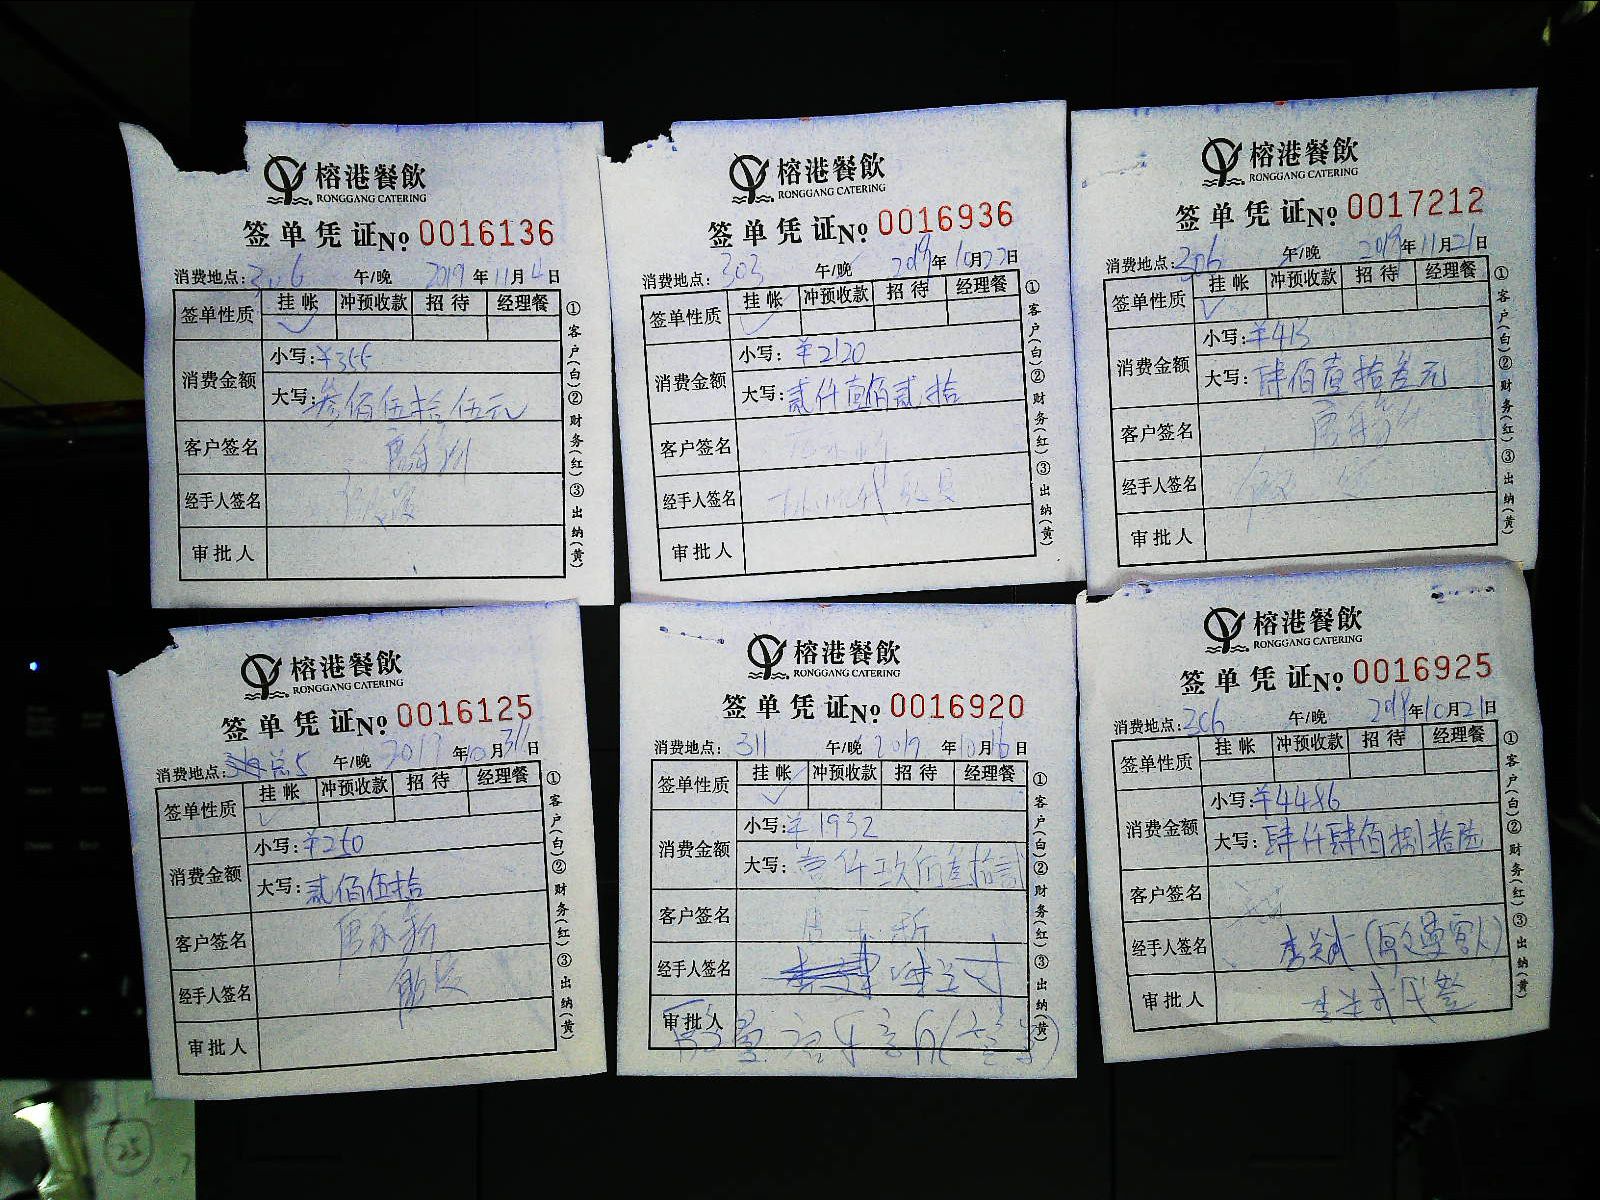 榕港餐飲
RONGGANG CATERING
签单凭证 No. 0016136
消费地点: 306 午/晚 2019年11月4日
签单性质 挂帐 冲预收款 招待 经理餐
✓
消费金额 小写:¥355
大写:叁佰伍拾伍元
客户签名
经手人签名
审批人
①客户(白)②财务(红)③出纳(黄)
榕港餐飲
RONGGANG CATERING
签单凭证 No. 0016936
消费地点: 303 午/晚 2019年10月22日
签单性质 挂帐 冲预收款 招待 经理餐
✓
消费金额 小写: ¥2120
大写:贰仟壹佰贰拾
客户签名
经手人签名
审批人
①客户(白)②财务(红)③出纳(黄)
榕港餐飲
RONGGANG CATERING
签单凭证 No. 0017212
消费地点:306 午/晚 2019年11月21日
签单性质 挂帐 冲预收款 招待 经理餐
✓
消费金额 小写:¥413
大写:肆佰壹拾叁元
客户签名
经手人签名
审批人
①客户(白)②财务(红)③出纳(黄)
榕港餐飲
RONGGANG CATERING
签单凭证 No. 0016125
消费地点: 5 午/晚 2019年10月31日
签单性质 挂帐 冲预收款 招待 经理餐
✓
消费金额 小写:¥250
大写:贰佰伍拾
客户签名
经手人签名
审批人
①客户(白)②财务(红)③出纳(黄)
榕港餐飲
RONGGANG CATERING
签单凭证 No. 0016920
消费地点: 311 午/晚 2019年10月16日
签单性质 挂帐 冲预收款 招待 经理餐
✓
消费金额 小写:¥1932
大写:壹仟玖佰叁拾贰
客户签名
经手人签名
审批人
①客户(白)②财务(红)③出纳(黄)
榕港餐飲
RONGGANG CATERING
签单凭证 No. 0016925
消费地点:206 午/晚 2019年10月21日
签单性质 挂帐 冲预收款 招待 经理餐
消费金额 小写:¥4486
大写:肆仟肆佰捌拾陆
客户签名
经手人签名
审批人 代签
①客户(白)②财务(红)③出纳(黄)
25